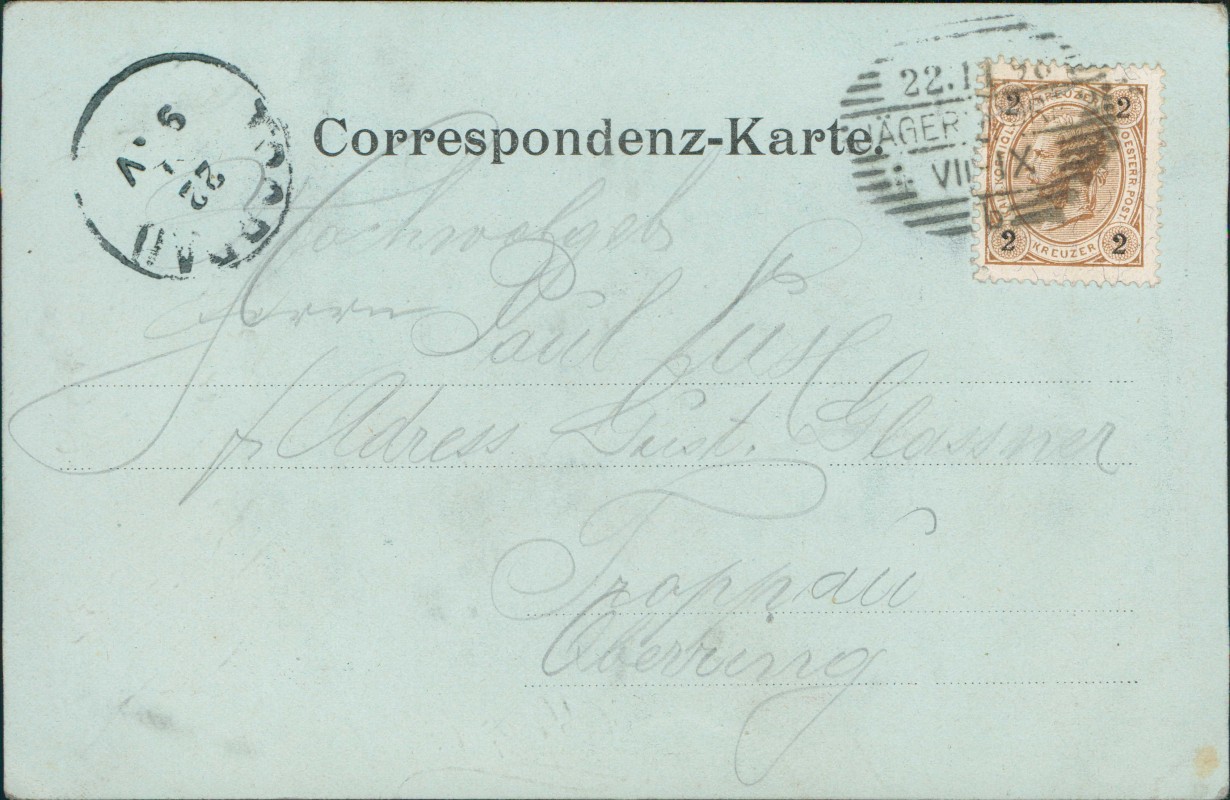 Correspondenz-Karte.
22.11.98
JÄGER
VII-X
2 2
OESTERR. POST
KREUZER
2 2
TROPPAU
22
9 V
Hochwolgeb
Herrn Paul
Adress Gust. Glassner
Troppau
Oberring